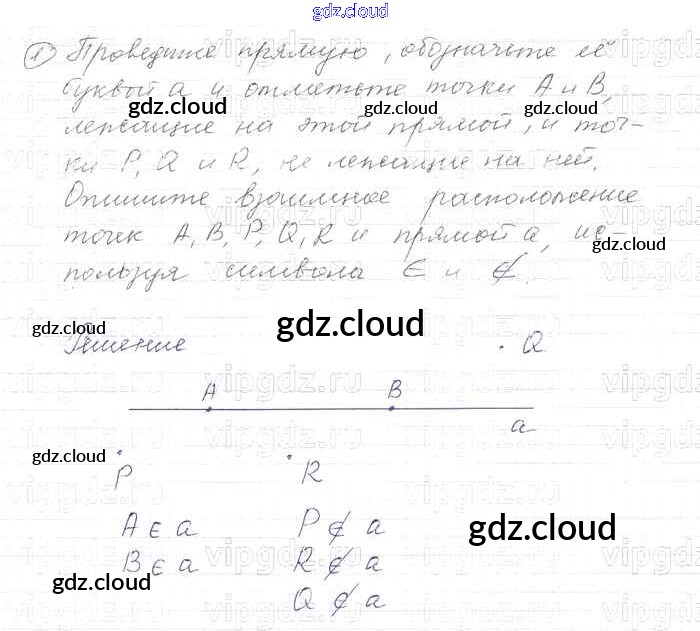 gdz.cloud
1) Проведите прямую, обозначьте её
буквой a и отметьте точки A и B,
gdz.cloud gdz.cloud
лежащие на этой прямой, и точ-
ки P, Q и R, не лежащие на ней.
Опишите взаимное расположение
точек A, B, P, Q, R и прямой a, ис-
gdz.cloud
пользуя символа ∈ и ∉.
gdz.cloud gdz.cloud
Решение . Q
vipgdz.ru
A B
a
gdz.cloud
P R
A ∈ a P ∉ a
gdz.cloud
B ∈ a R ∉ a
gdz.cloud
Q ∉ a